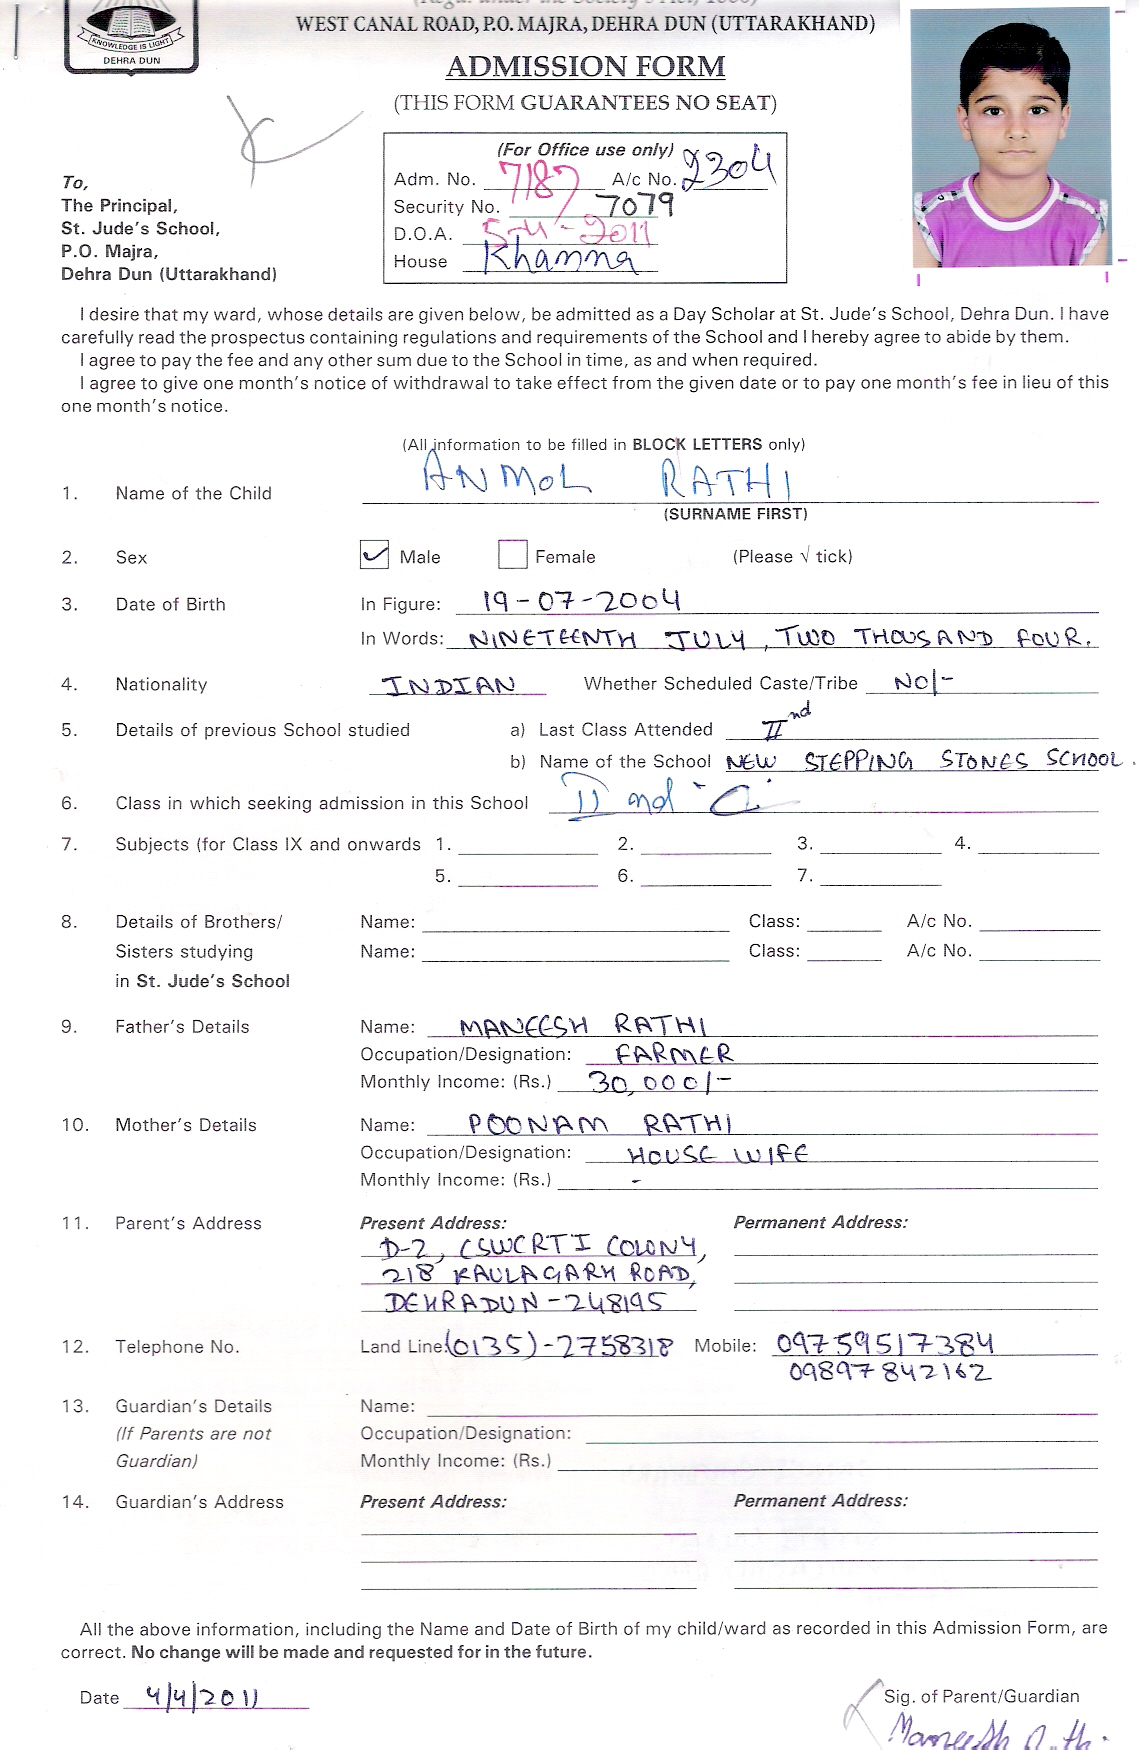 WEST CANAL ROAD, P.O. MAJRA, DEHRA DUN (UTTARAKHAND)
KNOWLEDGE IS LIGHT
DEHRA DUN
ADMISSION FORM
(THIS FORM GUARANTEES NO SEAT)
(For Office use only)
Adm. No. 7187 A/c No. 2304
Security No. 7079
D.O.A. 5-4-2011
House Khanna
To,
The Principal,
St. Jude's School,
P.O. Majra,
Dehra Dun (Uttarakhand)
I desire that my ward, whose details are given below, be admitted as a Day Scholar at St. Jude's School, Dehra Dun. I have
carefully read the prospectus containing regulations and requirements of the School and I hereby agree to abide by them.
I agree to pay the fee and any other sum due to the School in time, as and when required.
I agree to give one month's notice of withdrawal to take effect from the given date or to pay one month's fee in lieu of this
one month's notice.
(All information to be filled in BLOCK LETTERS only)
1. Name of the Child ANMOL RATHI
(SURNAME FIRST)
2. Sex ✓ Male Female (Please √ tick)
3. Date of Birth In Figure: 19-07-2004
In Words: NINETEENTH JULY, TWO THOUSAND FOUR.
4. Nationality INDIAN Whether Scheduled Caste/Tribe NO/-
5. Details of previous School studied a) Last Class Attended IInd
b) Name of the School NEW STEPPING STONES SCHOOL.
6. Class in which seeking admission in this School II nd "C"
7. Subjects (for Class IX and onwards 1. 2. 3. 4.
5. 6. 7.
8. Details of Brothers/ Name: Class: A/c No.
Sisters studying Name: Class: A/c No.
in St. Jude's School
9. Father's Details Name: MANEESH RATHI
Occupation/Designation: FARMER
Monthly Income: (Rs.) 30,000/-
10. Mother's Details Name: POONAM RATHI
Occupation/Designation: HOUSE WIFE
Monthly Income: (Rs.) -
11. Parent's Address Present Address: Permanent Address:
D-2, CSWCRTI COLONY,
218 KAULAGARH ROAD,
DEHRADUN-248195
12. Telephone No. Land Line: (0135)-2758318 Mobile: 09759517384
09897842162
13. Guardian's Details Name:
(If Parents are not Occupation/Designation:
Guardian) Monthly Income: (Rs.)
14. Guardian's Address Present Address: Permanent Address:
All the above information, including the Name and Date of Birth of my child/ward as recorded in this Admission Form, are
correct. No change will be made and requested for in the future.
Date 4/4/2011 Sig. of Parent/Guardian
Maneesh Rathi